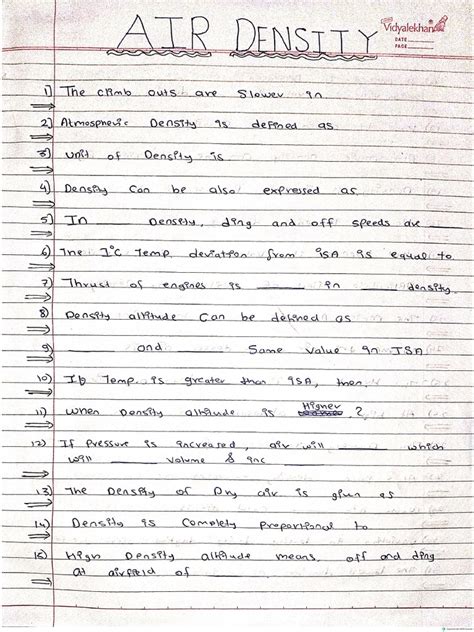 AIR DENSITY
Vidyalekhan
DATE
PAGE
1) The climb outs are slower in
2) Atmospheric Density is defined as
3) Unit of Density is
4) Density Can be also expressed as
5) In ____ Density, ding and off speeds are ____
6) The 1°C Temp. deviation from ISA is equal to
7) Thrust of engines is ____ in ____ density.
8) Density altitude Can be defined as
9) ____ and ____ Same value in ISA
10) If Temp. is greater than ISA, then
11) When Density altitude is Higher ?
12) If Pressure is increased, air will ____ which
will ____ volume & inc ____
13) The Density of Dry air is given as
14) Density is Completly proportional to
15) High Density altitude means, off and ding
At airfield of ____